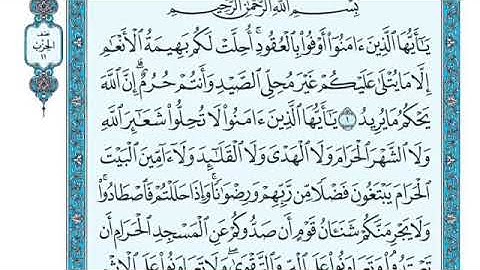 بِسْمِ ٱللَّهِ ٱلرَّحْمَٰنِ ٱلرَّحِيمِ
يَٰٓأَيُّهَا ٱلَّذِينَ ءَامَنُوٓا۟ أَوْفُوا۟ بِٱلْعُقُودِ ۚ أُحِلَّتْ لَكُم بَهِيمَةُ ٱلْأَنْعَٰمِ
إِلَّا مَا يُتْلَىٰ عَلَيْكُمْ غَيْرَ مُحِلِّى ٱلصَّيْدِ وَأَنتُمْ حُرُمٌ ۗ إِنَّ ٱللَّهَ
يَحْكُمُ مَا يُرِيدُ ١ يَٰٓأَيُّهَا ٱلَّذِينَ ءَامَنُوا۟ لَا تُحِلُّوا۟ شَعَٰٓئِرَ ٱللَّهِ
وَلَا ٱلشَّهْرَ ٱلْحَرَامَ وَلَا ٱلْهَدْىَ وَلَا ٱلْقَلَٰٓئِدَ وَلَآ ءَآمِّينَ ٱلْبَيْتَ
ٱلْحَرَامَ يَبْتَغُونَ فَضْلًا مِّن رَّبِّهِمْ وَرِضْوَٰنًا ۚ وَإِذَا حَلَلْتُمْ فَٱصْطَادُوا۟ ۚ
وَلَا يَجْرِمَنَّكُمْ شَنَـَٔانُ قَوْمٍ أَن صَدُّوكُمْ عَنِ ٱلْمَسْجِدِ ٱلْحَرَامِ أَن
تَعْتَدُوا۟ ۘ وَتَعَاوَنُوا۟ عَلَى ٱلْبِرِّ وَٱلتَّقْوَىٰ ۖ وَلَا تَعَاوَنُوا۟ عَلَى ٱلْإِثْمِ
نصف
الحزب
١١